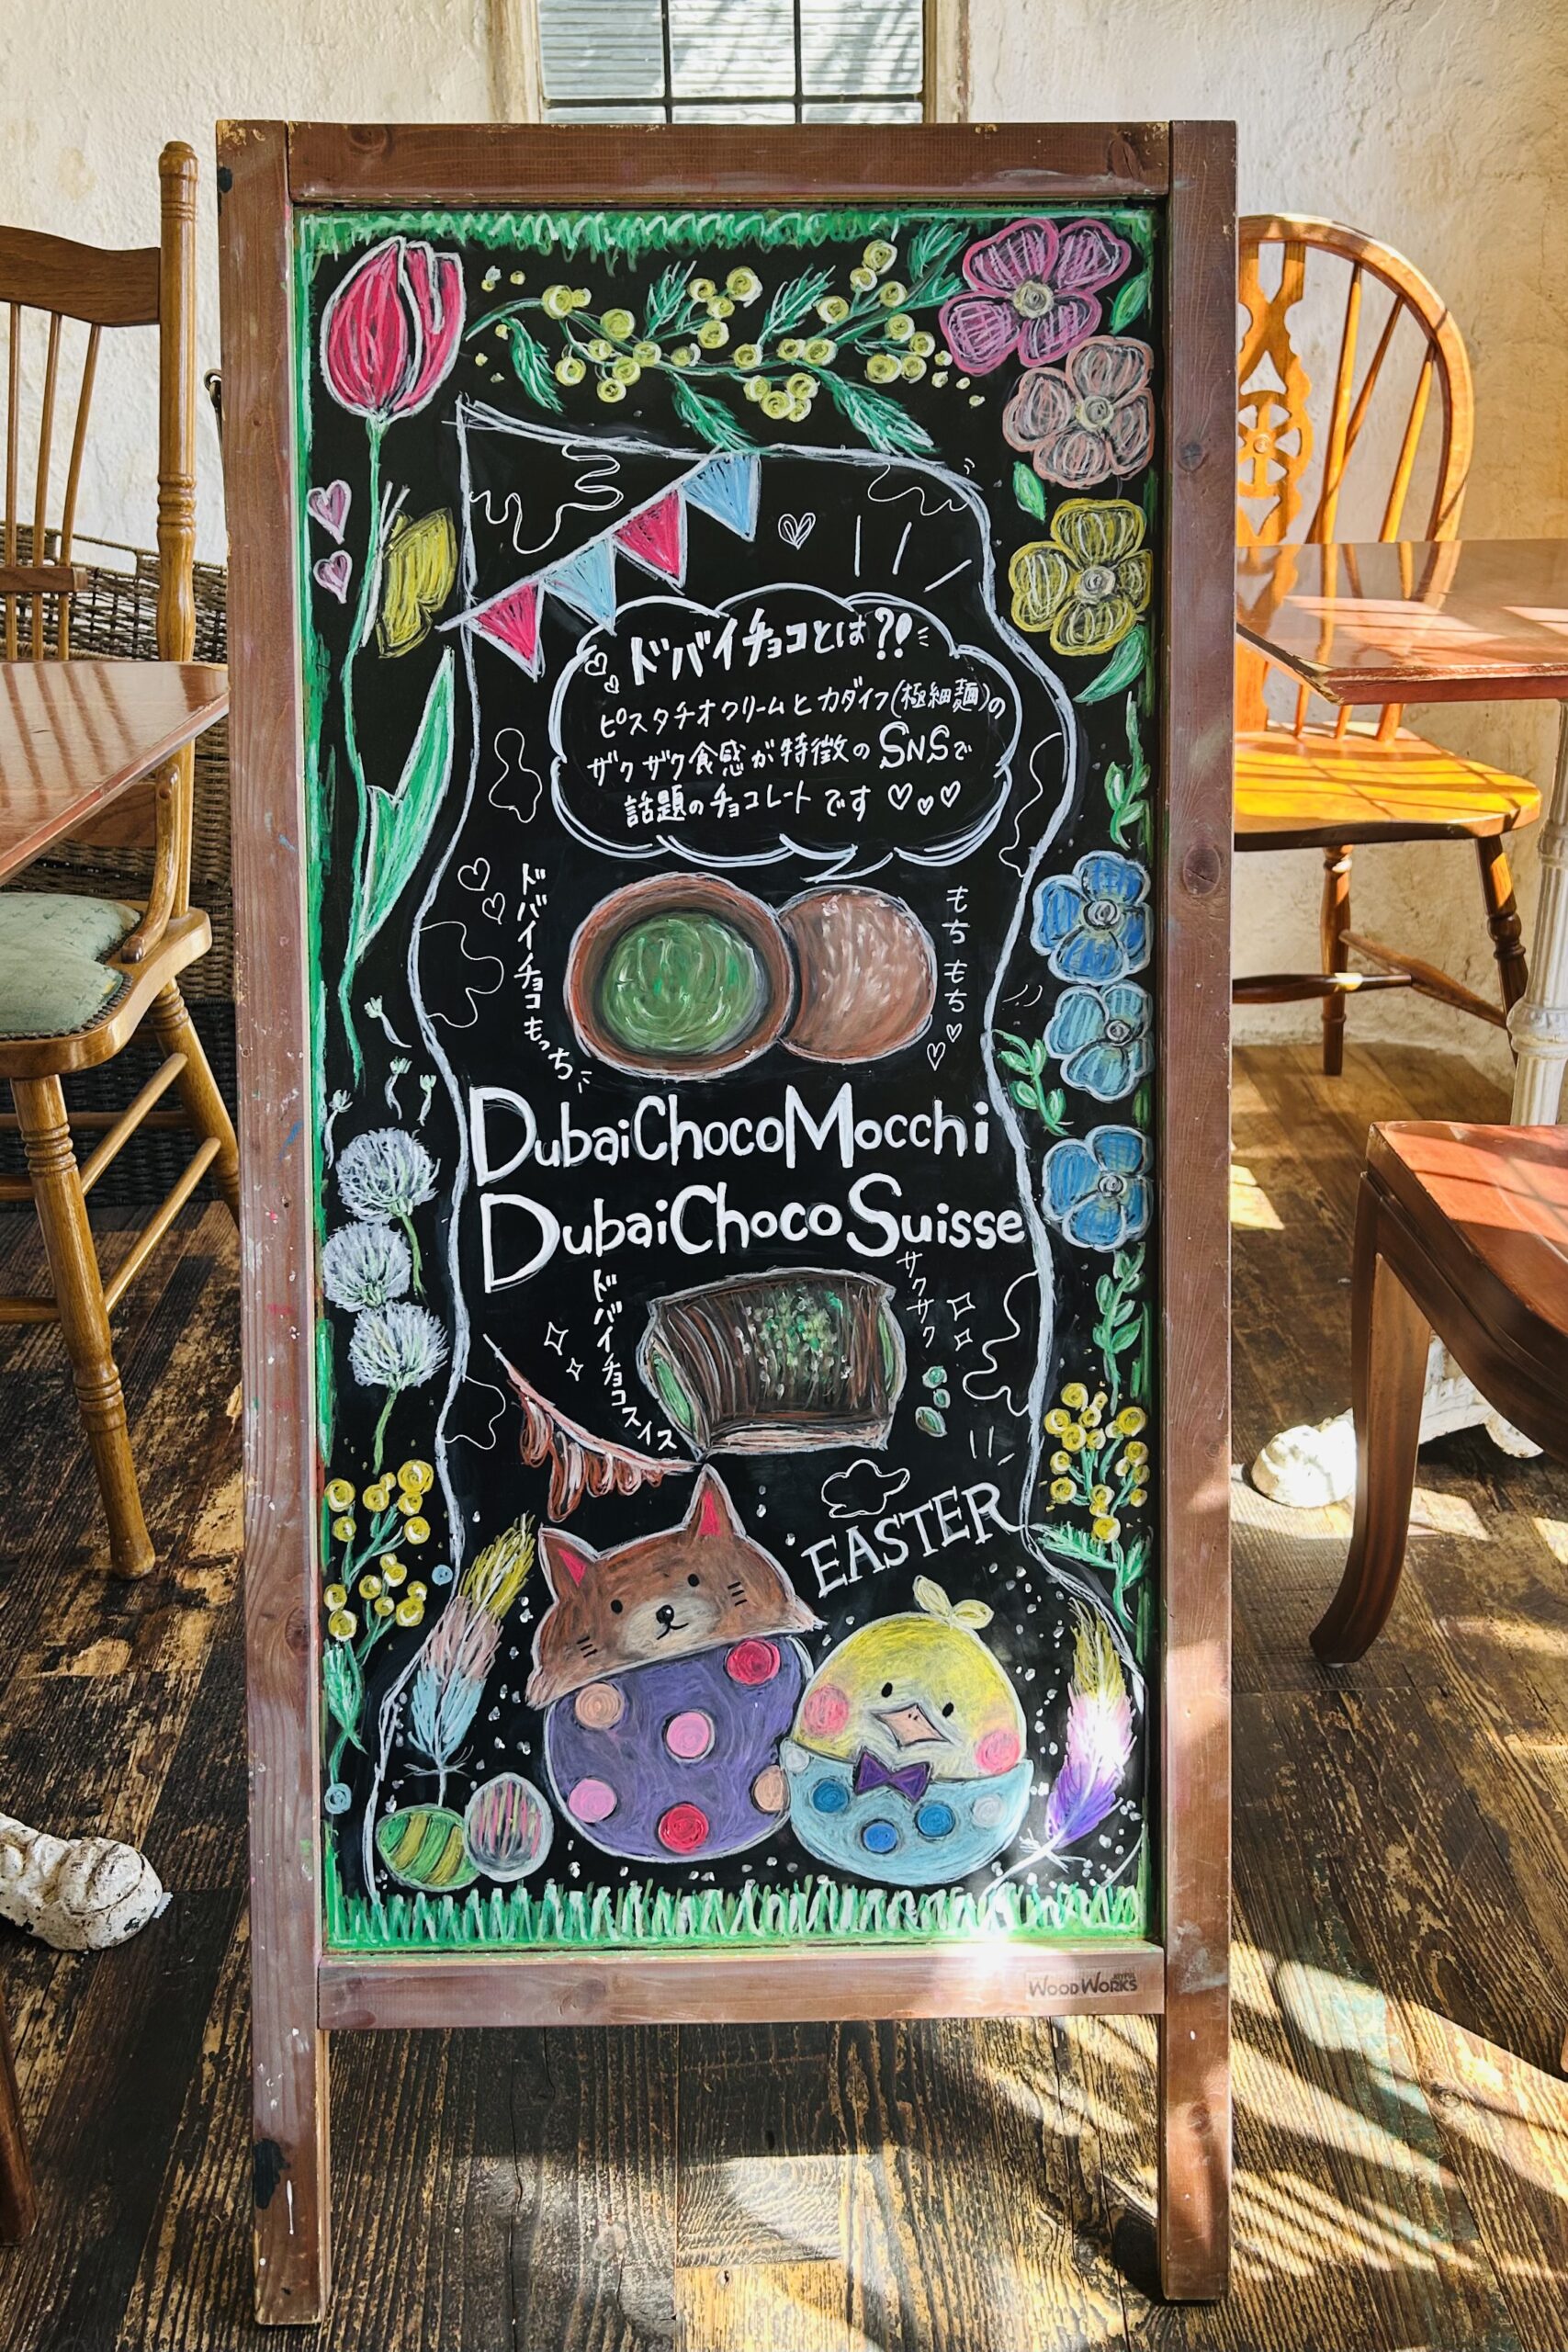 ドバイチョコとは?!
ピスタチオクリームとカダイフ(極細麺)の
ザクザク食感が特徴のSNSで
話題のチョコレートです
ドバイチョコもっち
もちもち
DubaiChocoMocchi
DubaiChocoSuisse
ドバイチョコスイス
サクサク
EASTER
WOODWORKS